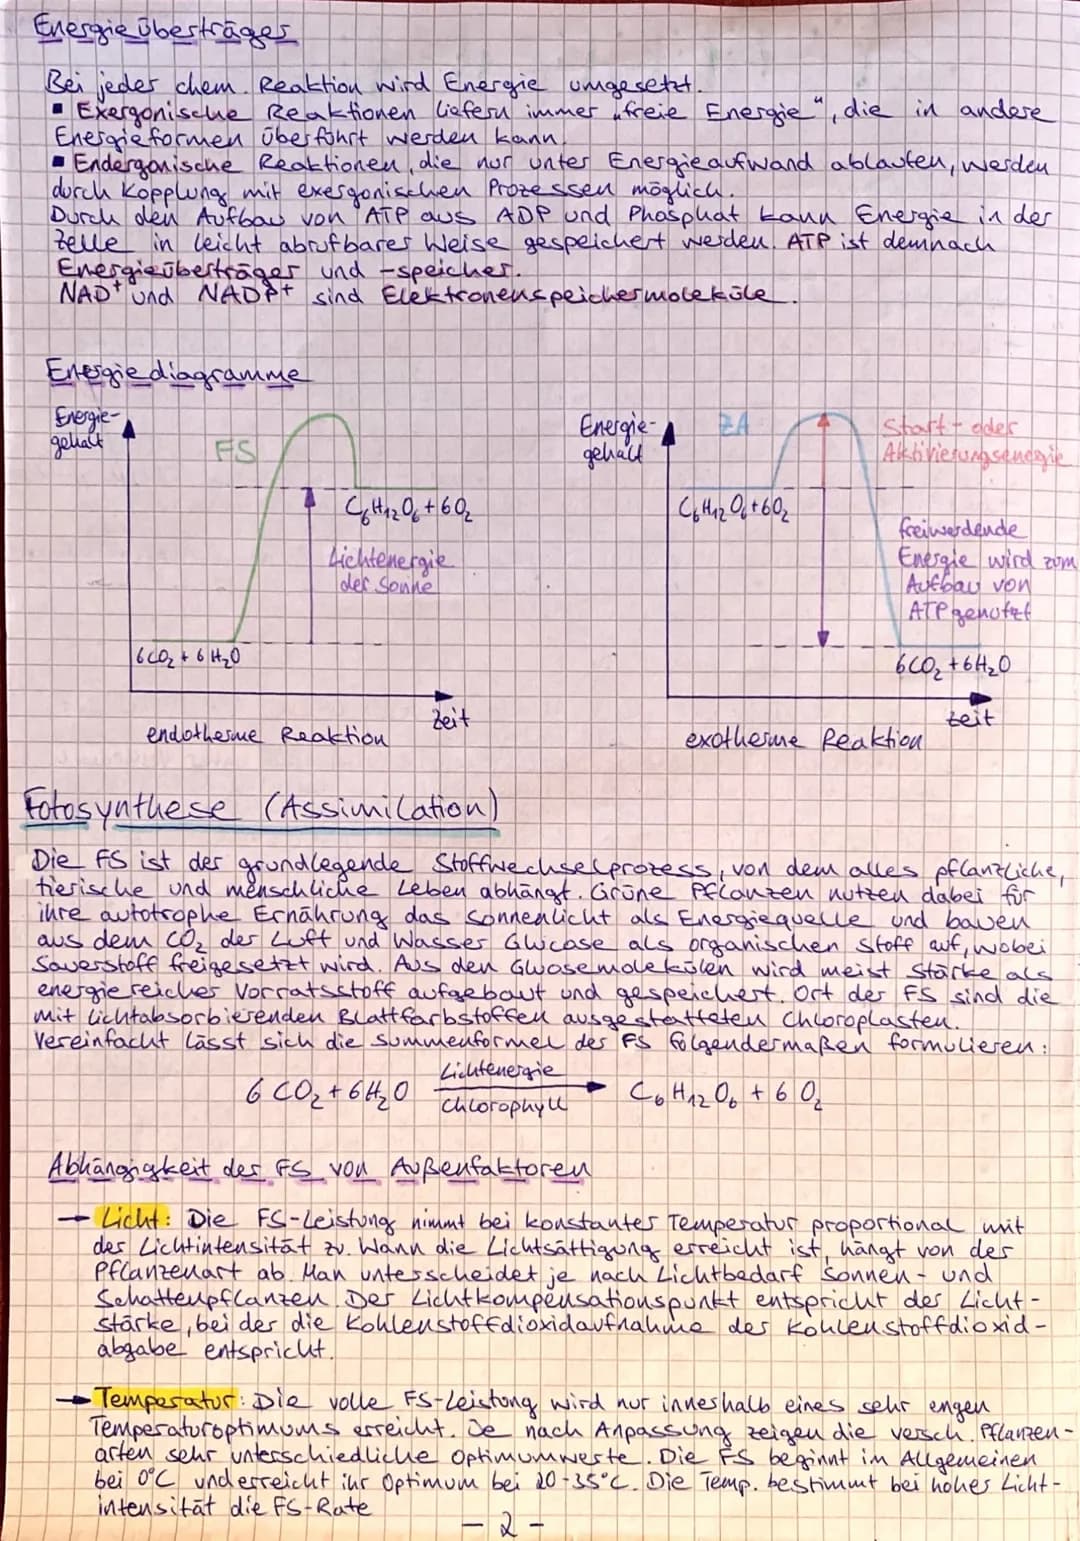 Energieüberträger
Bei jeder chem. Reaktion wird Energie umgesetzt.
▪ Exergonische Reaktionen liefern immer „freie Energie“, die in andere
Energieformen überführt werden kann.
▪ Endergonische Reaktionen, die nur unter Energieaufwand ablaufen, werden
durch Kopplung mit exergonischen Prozessen möglich.
Durch den Aufbau von ATP aus ADP und Phosphat kann Energie in der
Zelle in leicht abrufbarer Weise gespeichert werden. ATP ist demnach
Energieüberträger und -speicher.
NAD⁺ und NADP⁺ sind Elektronenspeichermoleküle.
Energiediagramme
Energie-
gehalt
FS
C₆H₁₂O₆ + 6O₂
Lichtenergie
der Sonne
6CO₂ + 6H₂O
Zeit
endotherme Reaktion
Energie-
gehalt
ZA
Start- oder
Aktivierungsenergie
C₆H₁₂O₆+6O₂
freiwerdende
Energie wird zum
Aufbau von
ATP genutzt
6CO₂ + 6H₂O
Zeit
exotherme Reaktion
Fotosynthese (Assimilation)
Die FS ist der grundlegende Stoffwechselprozess, von dem alles pflanzliche,
tierische und menschliche Leben abhängt. Grüne Pflanzen nutzen dabei für
ihre autotrophe Ernährung das Sonnenlicht als Energiequelle und bauen
aus dem CO₂ der Luft und Wasser Glucose als organischen Stoff auf, wobei
Sauerstoff freigesetzt wird. Aus den Glucosemolekülen wird meist Stärke als
energiereicher Vorratsstoff aufgebaut und gespeichert. Ort der FS sind die
mit lichtabsorbierenden Blattfarbstoffen ausgestatteten Chloroplasten.
Vereinfacht lässt sich die Summenformel der FS folgendermaßen formulieren:
Lichtenergie
6 CO₂ + 6H₂O → C₆H₁₂O₆ + 6 O₂
Chlorophyll
Abhängigkeit der FS von Außenfaktoren
→ Licht: Die FS-Leistung nimmt bei konstanter Temperatur proportional mit
der Lichtintensität zu. Wann die Lichtsättigung erreicht ist, hängt von der
Pflanzenart ab. Man unterscheidet je nach Lichtbedarf Sonnen- und
Schattenpflanzen. Der Lichtkompensationspunkt entspricht der Licht-
stärke, bei der die Kohlenstoffdioxidaufnahme der Kohlenstoffdioxid-
abgabe entspricht.
→ Temperatur: Die volle FS-Leistung wird nur innerhalb eines sehr engen
Temperaturoptimums erreicht. Je nach Anpassung zeigen die versch. Pflanzen-
arten sehr unterschiedliche Optimumwerte. Die FS beginnt im Allgemeinen
bei 0°C und erreicht ihr Optimum bei 20-35°C. Die Temp. bestimmt bei hoher Licht-
intensität die FS-Rate
- 2 -